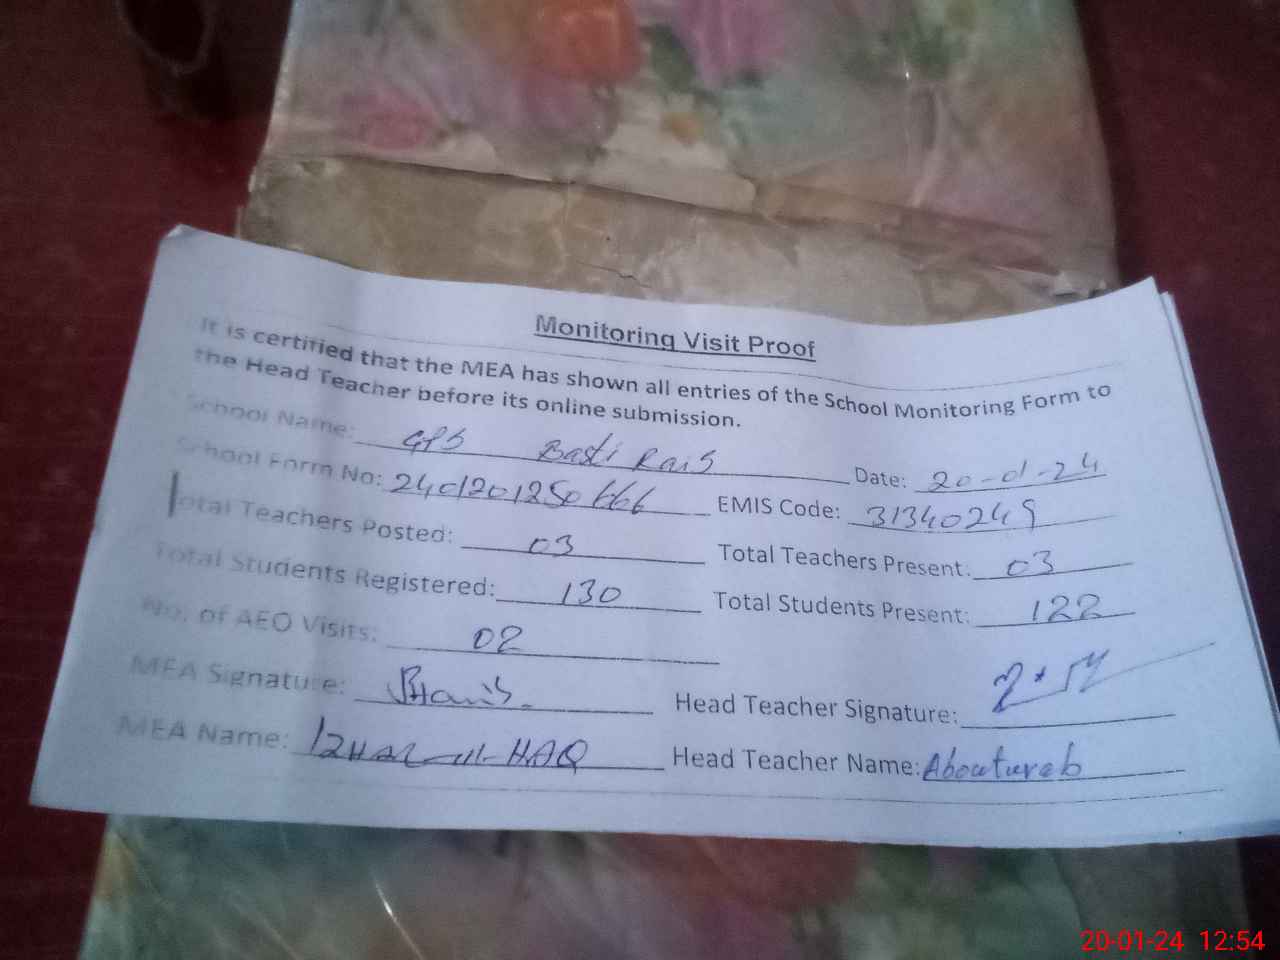 Monitoring Visit Proof
It is certified that the MEA has shown all entries of the School Monitoring Form to
the Head Teacher before its online submission.
School Name: GPS Basti Rais Date: 20-01-24
School Form No: 2401201250666 EMIS Code: 31340249
Total Teachers Posted: 03 Total Teachers Present: 03
Total Students Registered: 130 Total Students Present: 122
No. of AEO Visits: 02
MEA Signature: Head Teacher Signature:
MEA Name: IZHAR-ul-HAQ Head Teacher Name: Abouturab
20-01-24 12:54